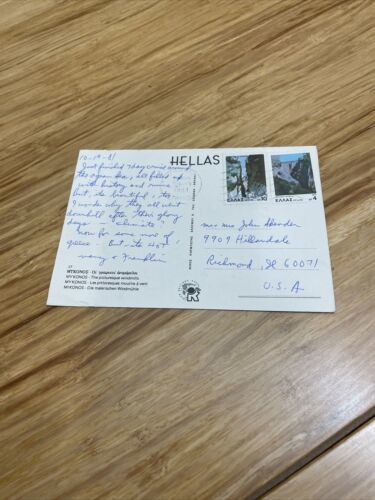 10-19-81
Just finished 7 day cruise around
the agean sea, all filled up
with history and ruins
but, its beautiful, its
I wonder why they all went
downhill after their glory
days - climate
now for some more of
greece - But its 40's!
Franklin
HELLAS
ΕΛΛΑΣ 10
ΕΛΛΑΣ 4
mr mrs John
9909 Hillandale
Richmond, Il 60071
U.S.A
ΜΥΚΟΝΟΣ - Οι γραφικοί ανεμόμυλοι
MYKONOS - The picturesque windmills
MYKONOS - Les pittoresques moulins à vent
MIKONOS - Die malerischen Windmühle